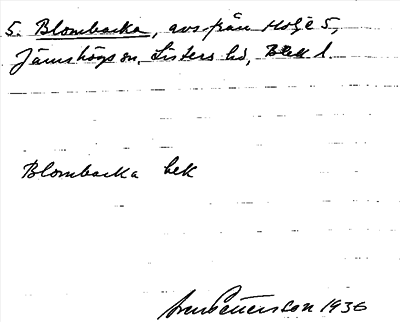 5. Blombacka, avs. från Holje 5,
Jämshögs sn, Listers hd, Blek l.
Blombacka hek
Petterson 1936